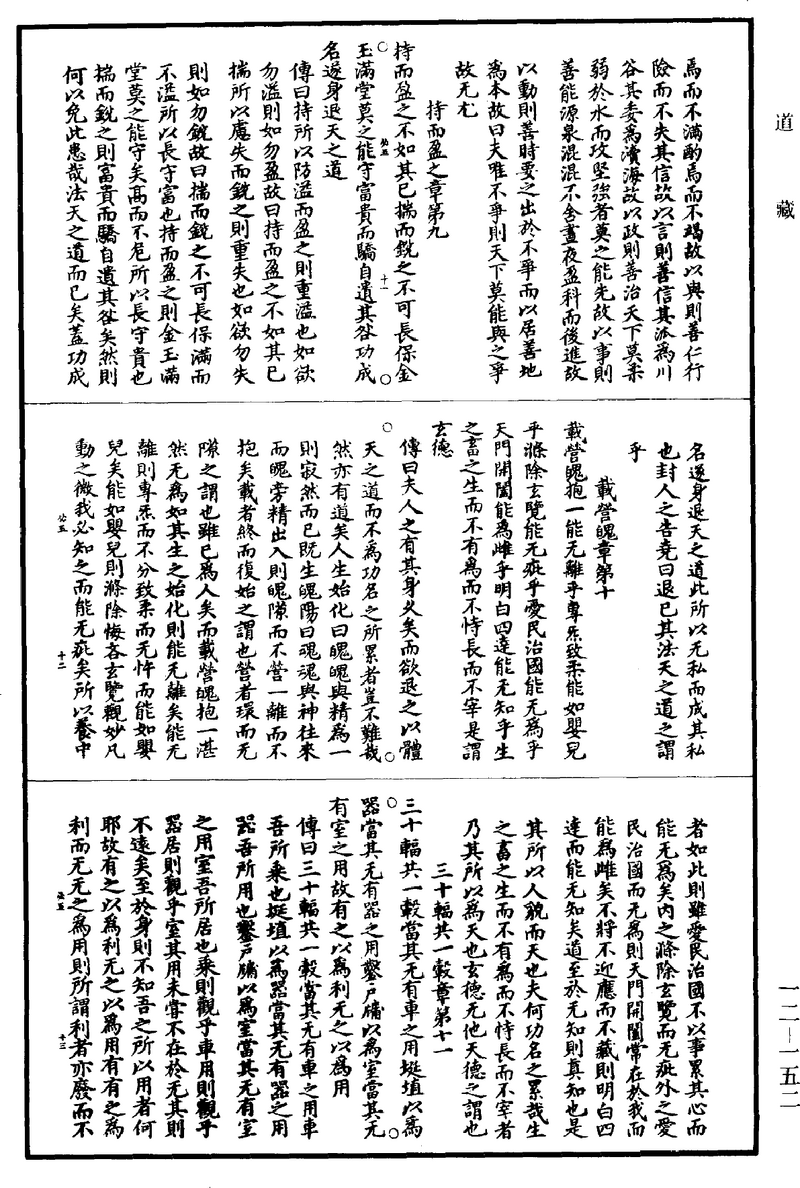 道藏
焉而不滿酌焉而不竭故以與則善仁行
險而不失其信故以言則善信其派為川
谷其委為瀆海故以政則善治天下莫柔
弱於水而攻堅強者莫之能先故以事則
善能源泉混混不舍晝夜盈科而後進故
以動則善時要之出於不爭而以居善地
為本故曰夫唯不爭則天下莫能與之爭
故无尤
持而盈之章第九
持而盈之不如其已揣而銳之不可長保金
玉滿堂莫之能守富貴而驕自遺其咎功成
名遂身退天之道
傳曰持所以防溢而盈之則重溢也如欲
勿溢則如勿盈故曰持而盈之不如其已
揣所以慮失而銳之則重失也如欲勿失
則如勿銳故曰揣而銳之不可長保滿而
不溢所以長守富也持而盈之則金玉滿
堂莫之能守矣高而不危所以長守貴也
揣而銳之則富貴而驕自遺其咎矣然則
何以免此患哉法天之道而已矣蓋功成
必五
十一
名遂身退天之道此所以无私而成其私
也封人之告堯曰退已其法天之道之謂
乎
載營魄章第十
載營魄抱一能无離乎專炁致柔能如嬰兒
乎滌除玄覽能无疵乎愛民治國能无為乎
天門開闔能為雌乎明白四達能无知乎生
之畜之生而不有為而不恃長而不宰是謂
玄德
傳曰夫人之有其身久矣而欲退之以體
天之道而不為功名之所累者豈不難哉
然亦有道矣人生始化曰魄魄與精為一
則寂然而已既生魄陽曰魂魂與神往來
而魄旁精出入則魄隙而不營一離而不
抱矣載者終而復始之謂也營者環而无
隙之謂也雖已為人矣而載營魄抱一湛
然无為如其生之始化則能无離矣能无
離則專炁而不分致柔而无忤而能如嬰
兒矣能如嬰兒則滌除悔吝玄覽觀妙凡
動之微我必知之而能无疵矣所以養中
必五
十二
者如此則雖愛民治國不以事累其心而
能无為矣內之滌除玄覽而无疵外之愛
民治國而无為則天門開闔常在於我而
能為雌矣不將不迎應而不藏則明白四
達而能无知矣道至於无知則真知也是
其所以人貌而天也夫何功名之累哉生
之畜之生而不有為而不恃長而不宰者
乃其所以為天也玄德无他天德之謂也
三十輻共一轂章第十一
三十輻共一轂當其无有車之用埏埴以為
器當其无有器之用鑿戶牖以為室當其无
有室之用故有之以為利无之以為用
傳曰三十輻共一轂當其无有車之用車
吾所乘也埏埴以為器當其无有器之用
器吾所用也鑿戶牖以為室當其无有室
之用室吾所居也乘則觀乎車用則觀乎
器居則觀乎室其用未嘗不在於无其則
不遠矣至於身則不知吾之所以用者何
耶故有之以為利无之以為用有有之為
利而无无之為用則所謂利者亦廢而不
必五
十三
一二一一五二